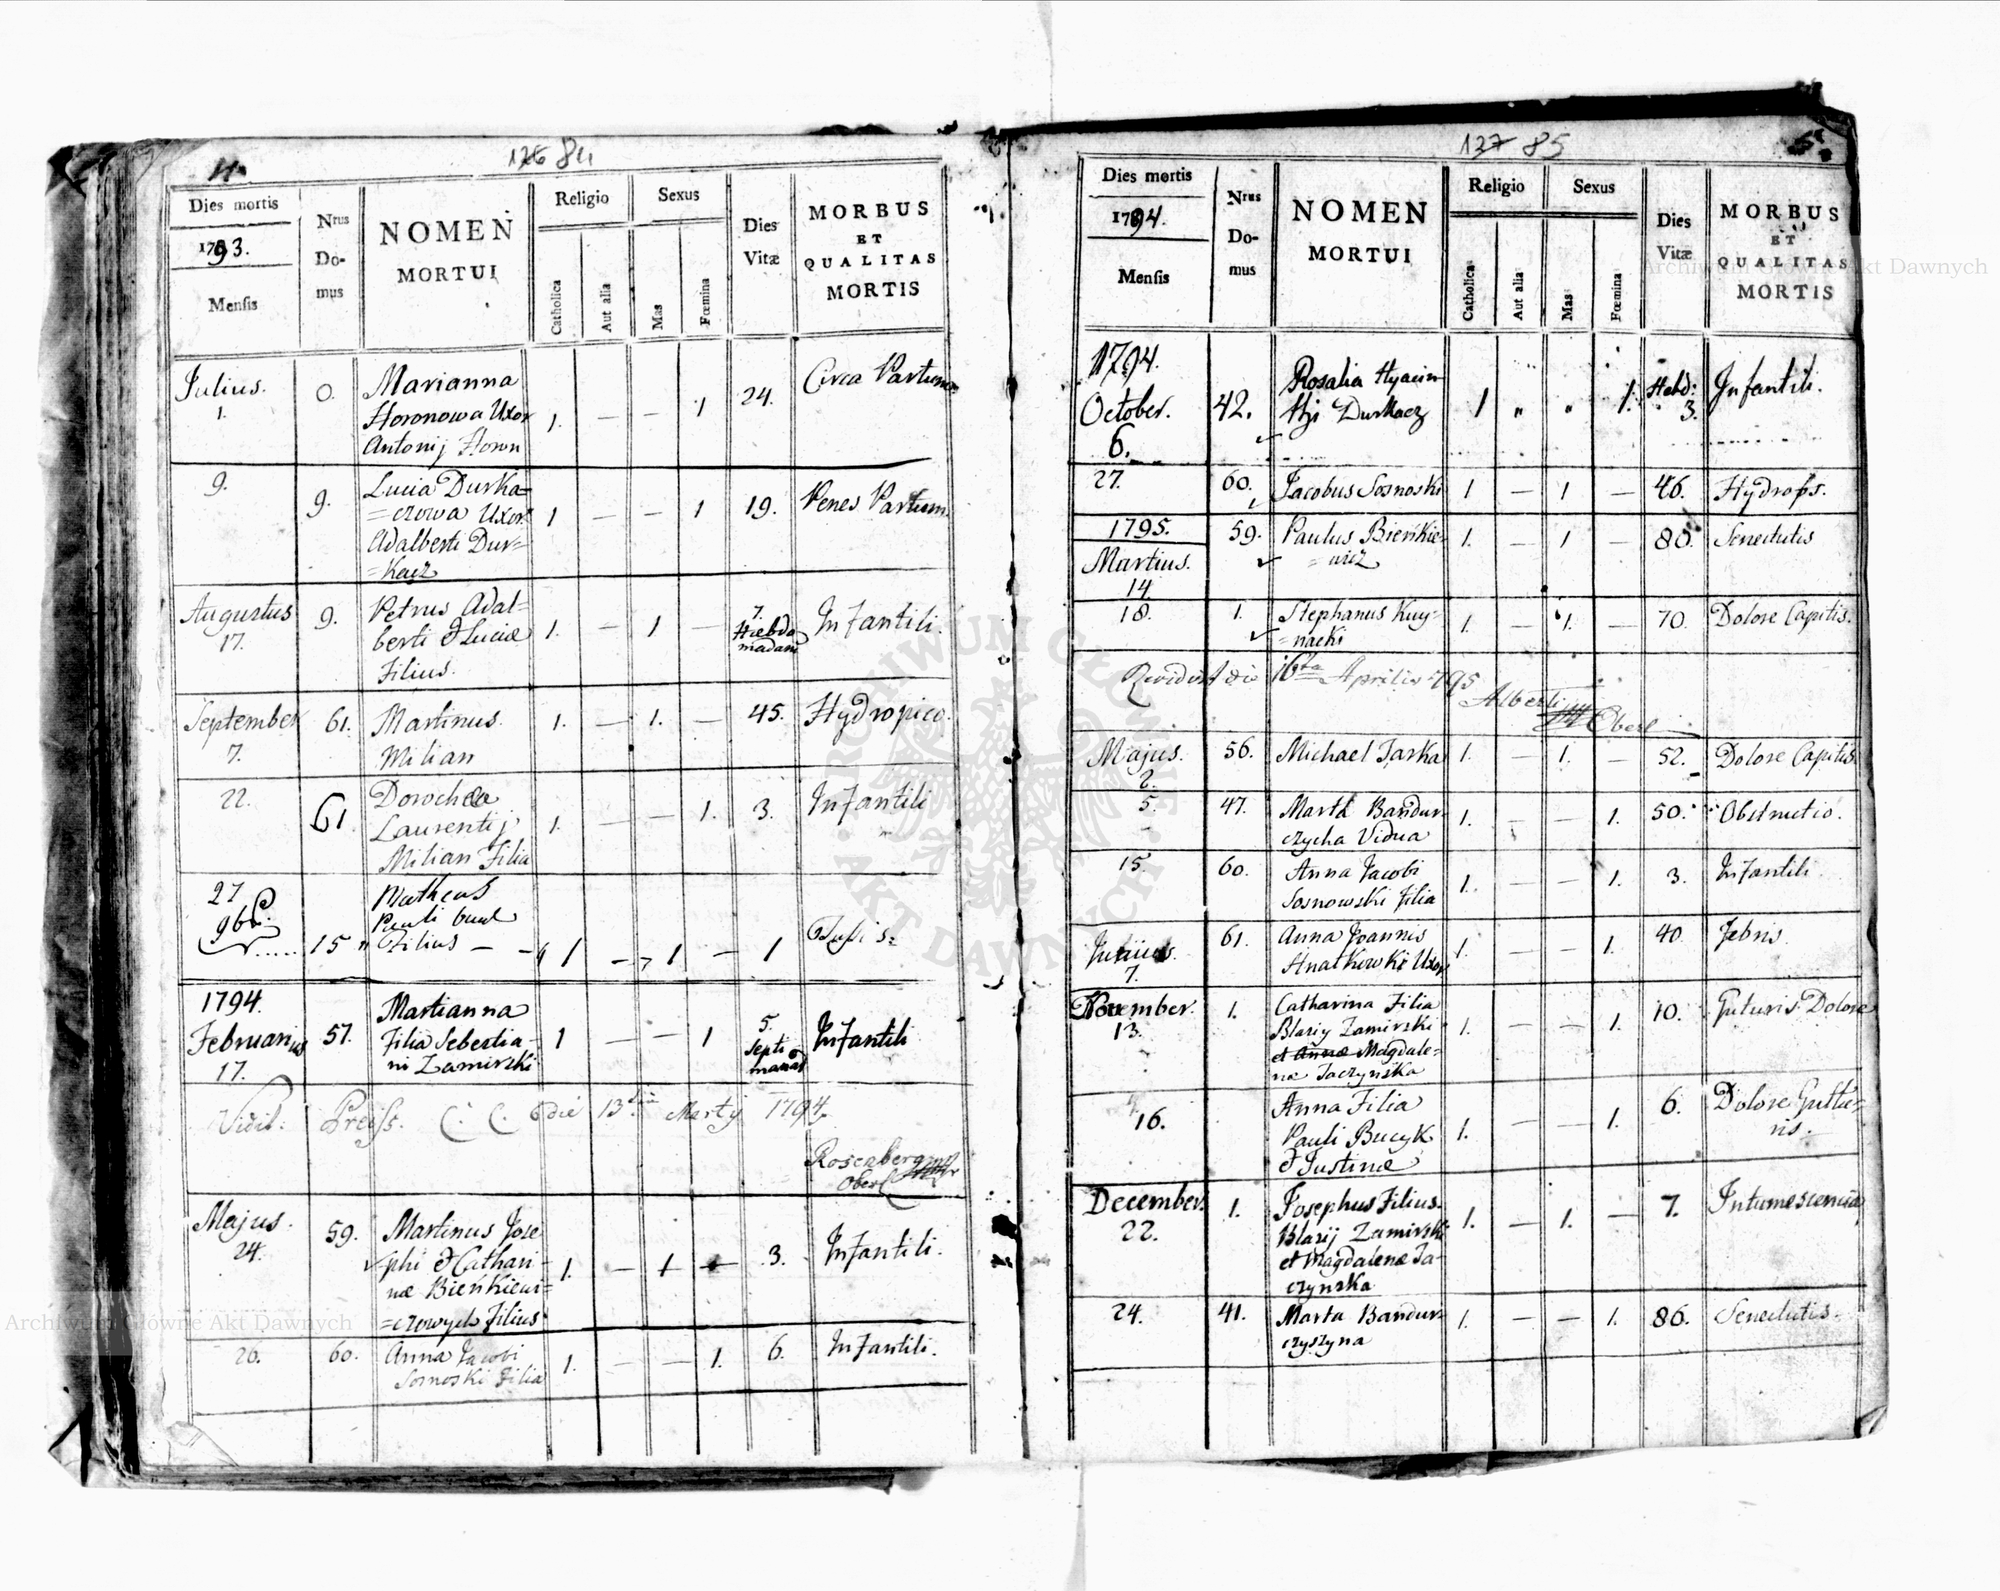 4.
126 84
Dies mortis
1793.
Mensis
Nrus
Do-
mus
NOMEN
MORTUI
Religio
Catholica
Aut alia
Sexus
Mas
Fœmina
Dies
Vitæ
MORBUS
ET
QUALITAS
MORTIS
Julius.
1.
0.
Marianna
Horonowa Uxor
Antonij Horon
1. — — 1 24.
Circa Partum
9.
9.
Lucia Durka=
=czowa Uxor
Adalberti Dur=
=kacz
1 — — 1 19.
Penes Partum
Augustus
17.
9.
Petrus Adal=
berti & Luciæ
Filius.
1. — 1 —
7.
Hebdo
madarum
Infantili.
September
7.
61.
Martinus
Milian
1. — 1. — 45.
Hydropico.
22.
61.
Dorothea
Laurentij
Milian Filia
1. — — 1. 3.
Infantili
27
9b
15
Matheus
Pauli
Filius — —
1 — 1 — 1
Tussis
1794.
Februarius
17.
57.
Marianna
Filia Sebestia-
ni Zamirski
1 — — 1
5.
Septi
manas
Infantili
Vidit: Preiss. C. C. die 13tia Martij 1794.
Rosenberg mp
Ober
Majus.
24.
59.
Martinus Jose
phi & Cathari-
næ Bieńkiewi=
=czowych Filius
1. — 1 — 3.
Infantili.
26.
60.
Anna Jacobi
Sosnoski Filia
1. — — 1. 6.
Infantili.
127 85
5.
Dies mortis
1794.
Mensis
Nrus
Do-
mus
NOMEN
MORTUI
Religio
Catholica
Aut alia
Sexus
Mas
Fœmina
Dies
Vitæ
MORBUS
ET
QUALITAS
MORTIS
1794.
October.
6.
42.
Rosalia Hyacin
thji Durkacz
1 " " 1.
Hebd:
3.
Infantili.
27.
60.
Jacobus Sosnoski
1 — 1 — 46.
Hydrops.
1795.
Martius.
14.
59.
Paulus Bieńkie=
=wicz
1. — 1 — 80.
Senectutis
18.
1.
Stephanus Kuy=
=nacki
1. — 1. — 70.
Dolore Capitis.
Revidirt die 16ta Aprilis 795
Alberti
Oberl
Majus.
2.
56.
Michael Jarka
1. — 1. — 52.
Dolore Capitis.
5.
47.
Marta Bandur
czycha Vidua
1. — — 1. 50.
Obstructio.
15.
60.
Anna Jacobi
Sosnowski Filia
1. — — 1. 3.
Infantili.
7.
61.
Anna Joannis
Hnatkowski Uxor
1. — — 1. 40
Febris.
November.
13.
1.
Catharina Filia
Blasij Zamirski
et Annæ Magdale=
næ Jaczyńska
1. — — 1. 10.
Guturis Dolore
16.
Anna Filia
Pauli Bucyk
& Justinæ
1. — — 1. 6.
Dolore Guttu=
ris.
December.
22.
1.
Josephus Filius
Blasij Zamirski
et Magdalenæ Ja-
czynska
1. — 1. — 7.
Intumescencia
24.
41.
Marta Bandur-
czyszyna
1. — — 1. 86.
Senectutis.
Archiwum Główne Akt Dawnych
Archiwum Główne Akt Dawnych
ARCHIWUM GŁÓWNE
AKT DAWNYCH